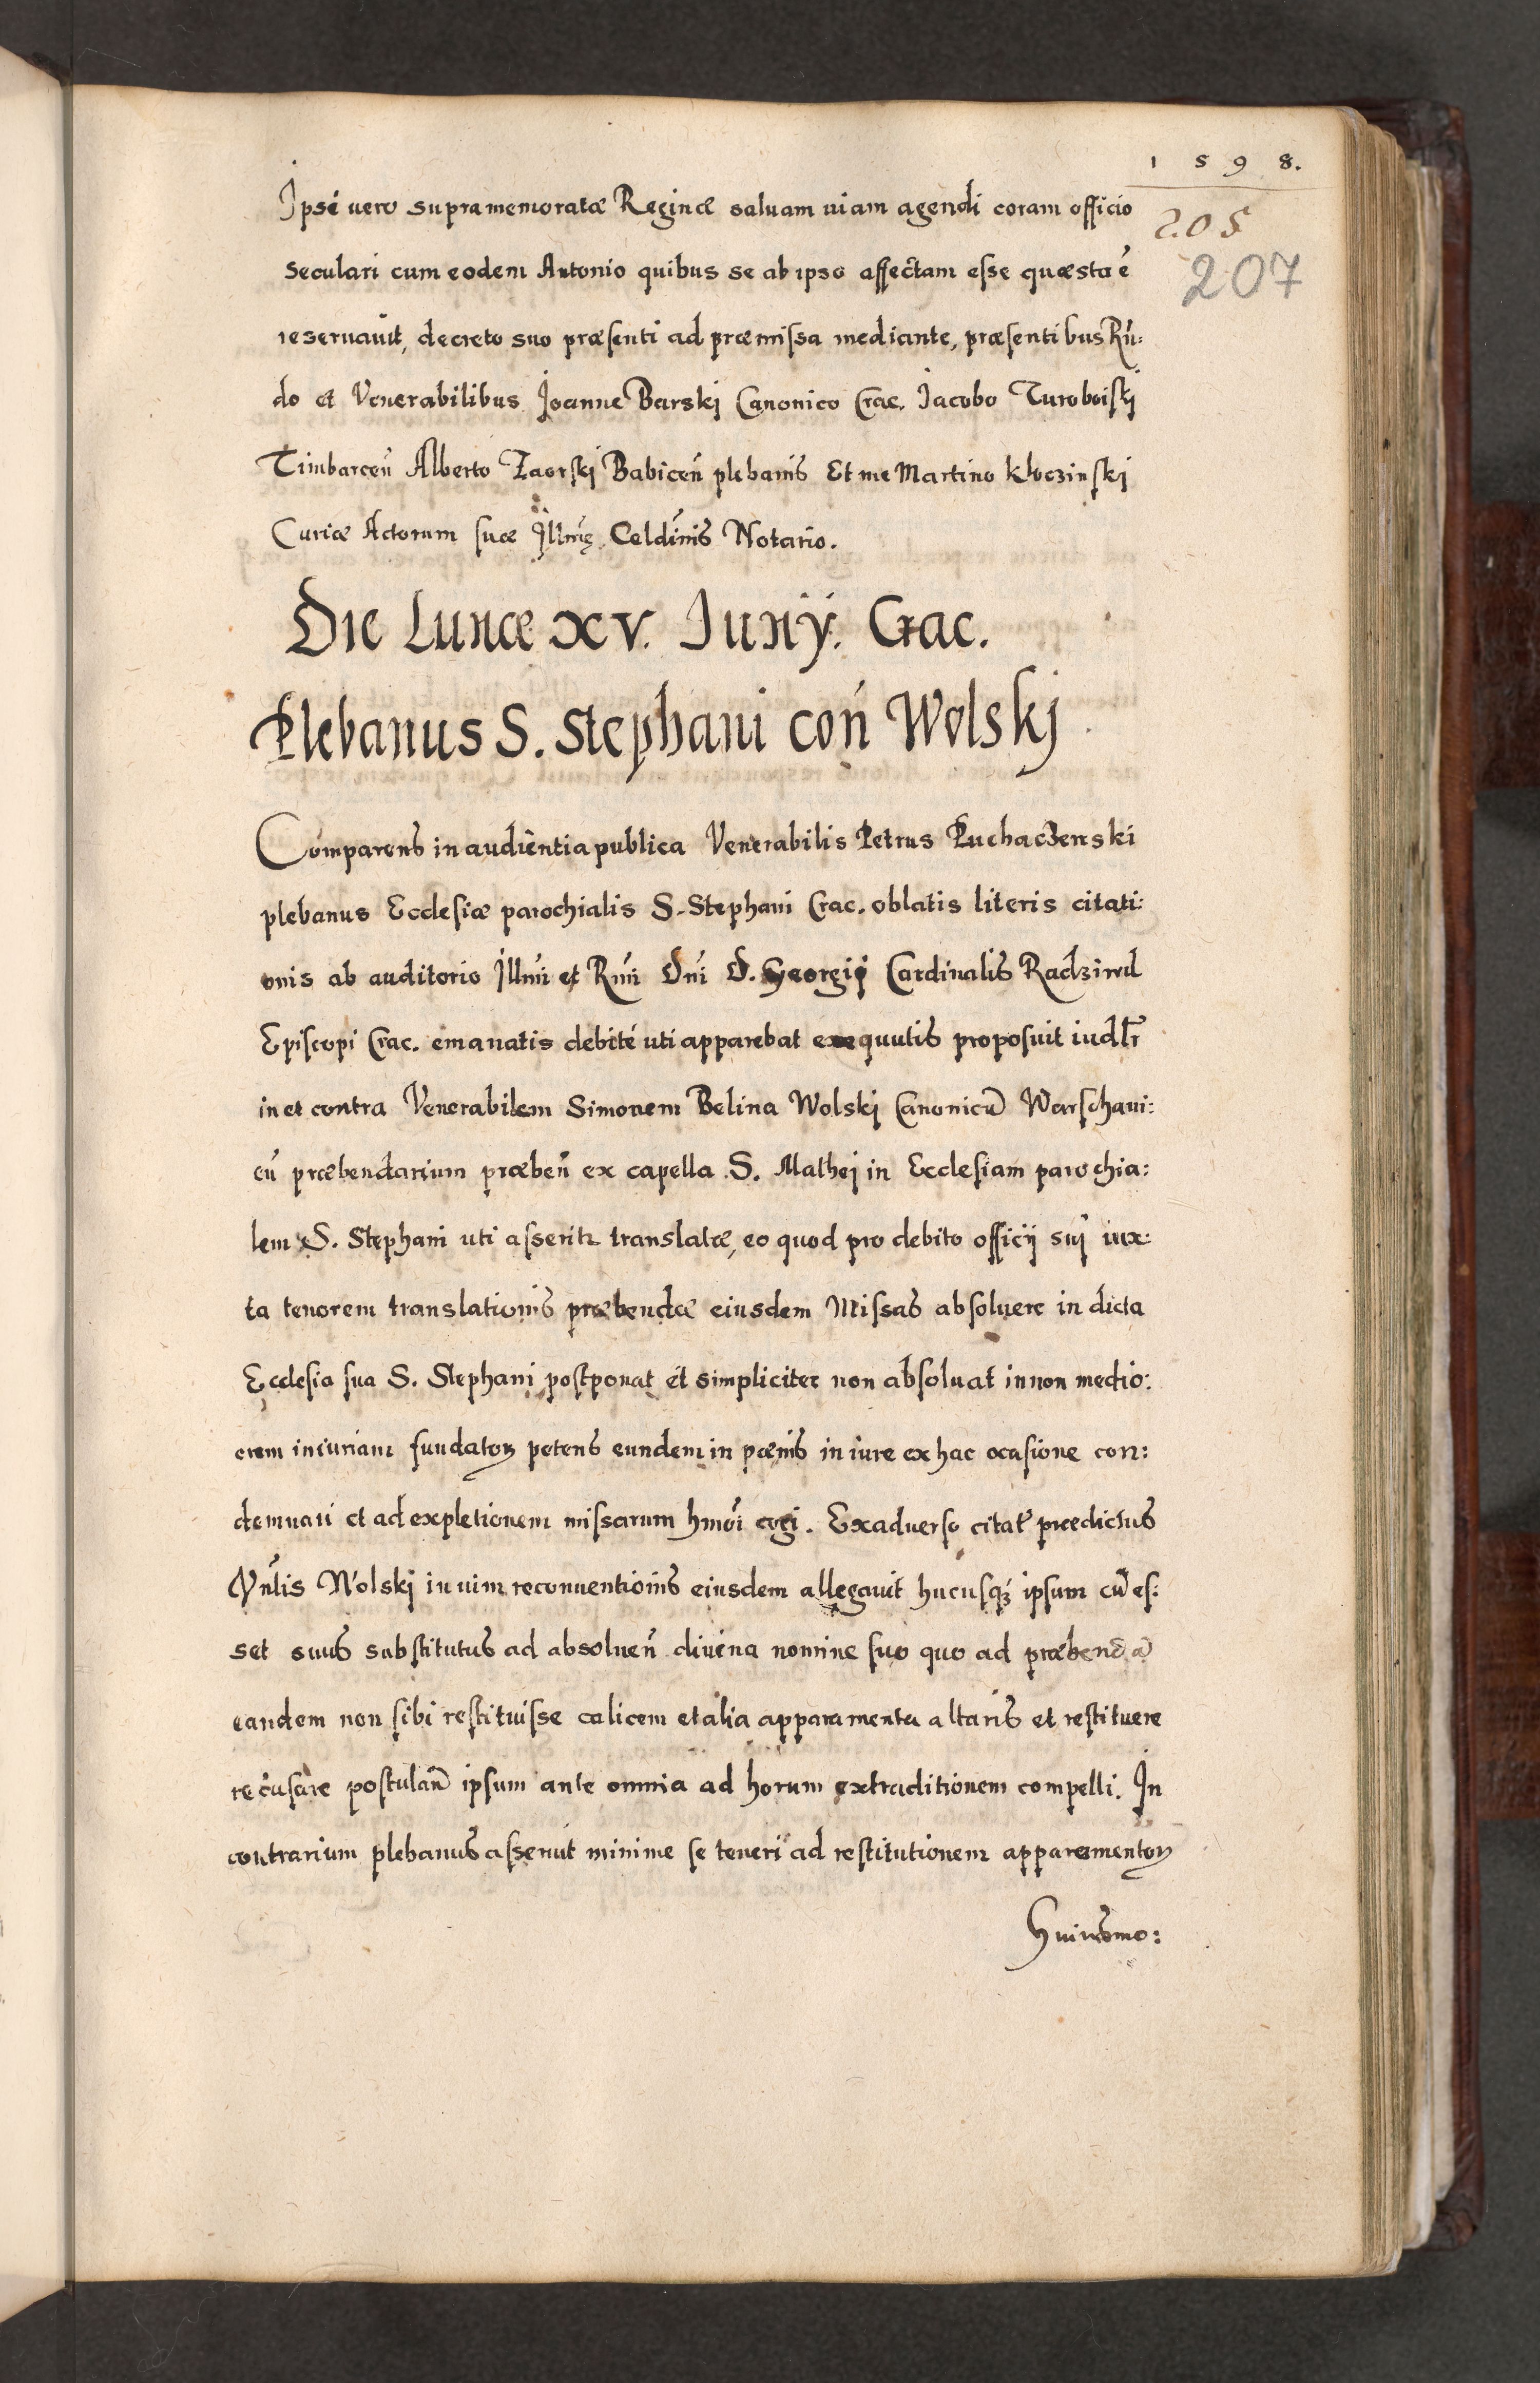 1598.
205
207
Ipsi vero supramemoratæ Reginæ saluam uiam agendi coram officio
seculari cum eodem Antonio quibus se ab ipso affectam esse quæsta ē
reseruauit, decreto suo præsenti ad præmissa mediante, præsentibus Rn̄:
do et Venerabilibus Joanne Barskj Canonico Crac. Jacobo Turoboiskj
Timbarceń Alberto Zaorskj Babiceń plebanis Et me Martino Kłoczinskj
Curiæ Actorum suæ Illmę Celdinis Notario.
Die Lunæ xv. Junÿ. Crac.
Plebanus S. Stephani coń Wolskj
Comparens in audientia publica Venerabilis Petrus Puchaczenski
plebanus Ecclesiæ parochialis S. Stephani Crac. oblatis literis citati:
onis ab auditorio Illmi et Rmi Dni D. Georgij Cardinalis Radziwil
Episcopi Crac. emanatis debité uti apparebat exequutis proposuit iudlr̄
in et contra Venerabilem Simonem Belina Wolskj Canonicū Warschaui:
eń præbendarium præbeń ex capella S. Mathej in Ecclesiam parochia:
lem S. Stephani uti asseritr translatæ, eo quod pro debito officij sui iux:
ta tenorem translationis præbendæ eiusdem Missas absoluere in dicta
Ecclesia sua S. Stephani postponat et simpliciter non absoluat in non medio:
crem iniuriam fundatoꝝ petens eundem in pœnis in iure ex hac ocasione con:
demnari et ad expletionem missarum hmōi cogi. Ex aduerso citat' prædictus
Vnlis Wolskj in uim reconuentionis eiusdem allegauit hucusqꝫ ipsum cū es:
set suus substitutus ad absolueń diuina nomine suo quo ad præbendā
eandem non sibi restituisse calicem et alia apparamenta altaris et restituere
recusare postulań ipsum ante omnia ad horum extraditionem compelli. In
contrarium plebanus asseruit minime se teneri ad restitutionem apparamentoꝝ
Huiusmo: